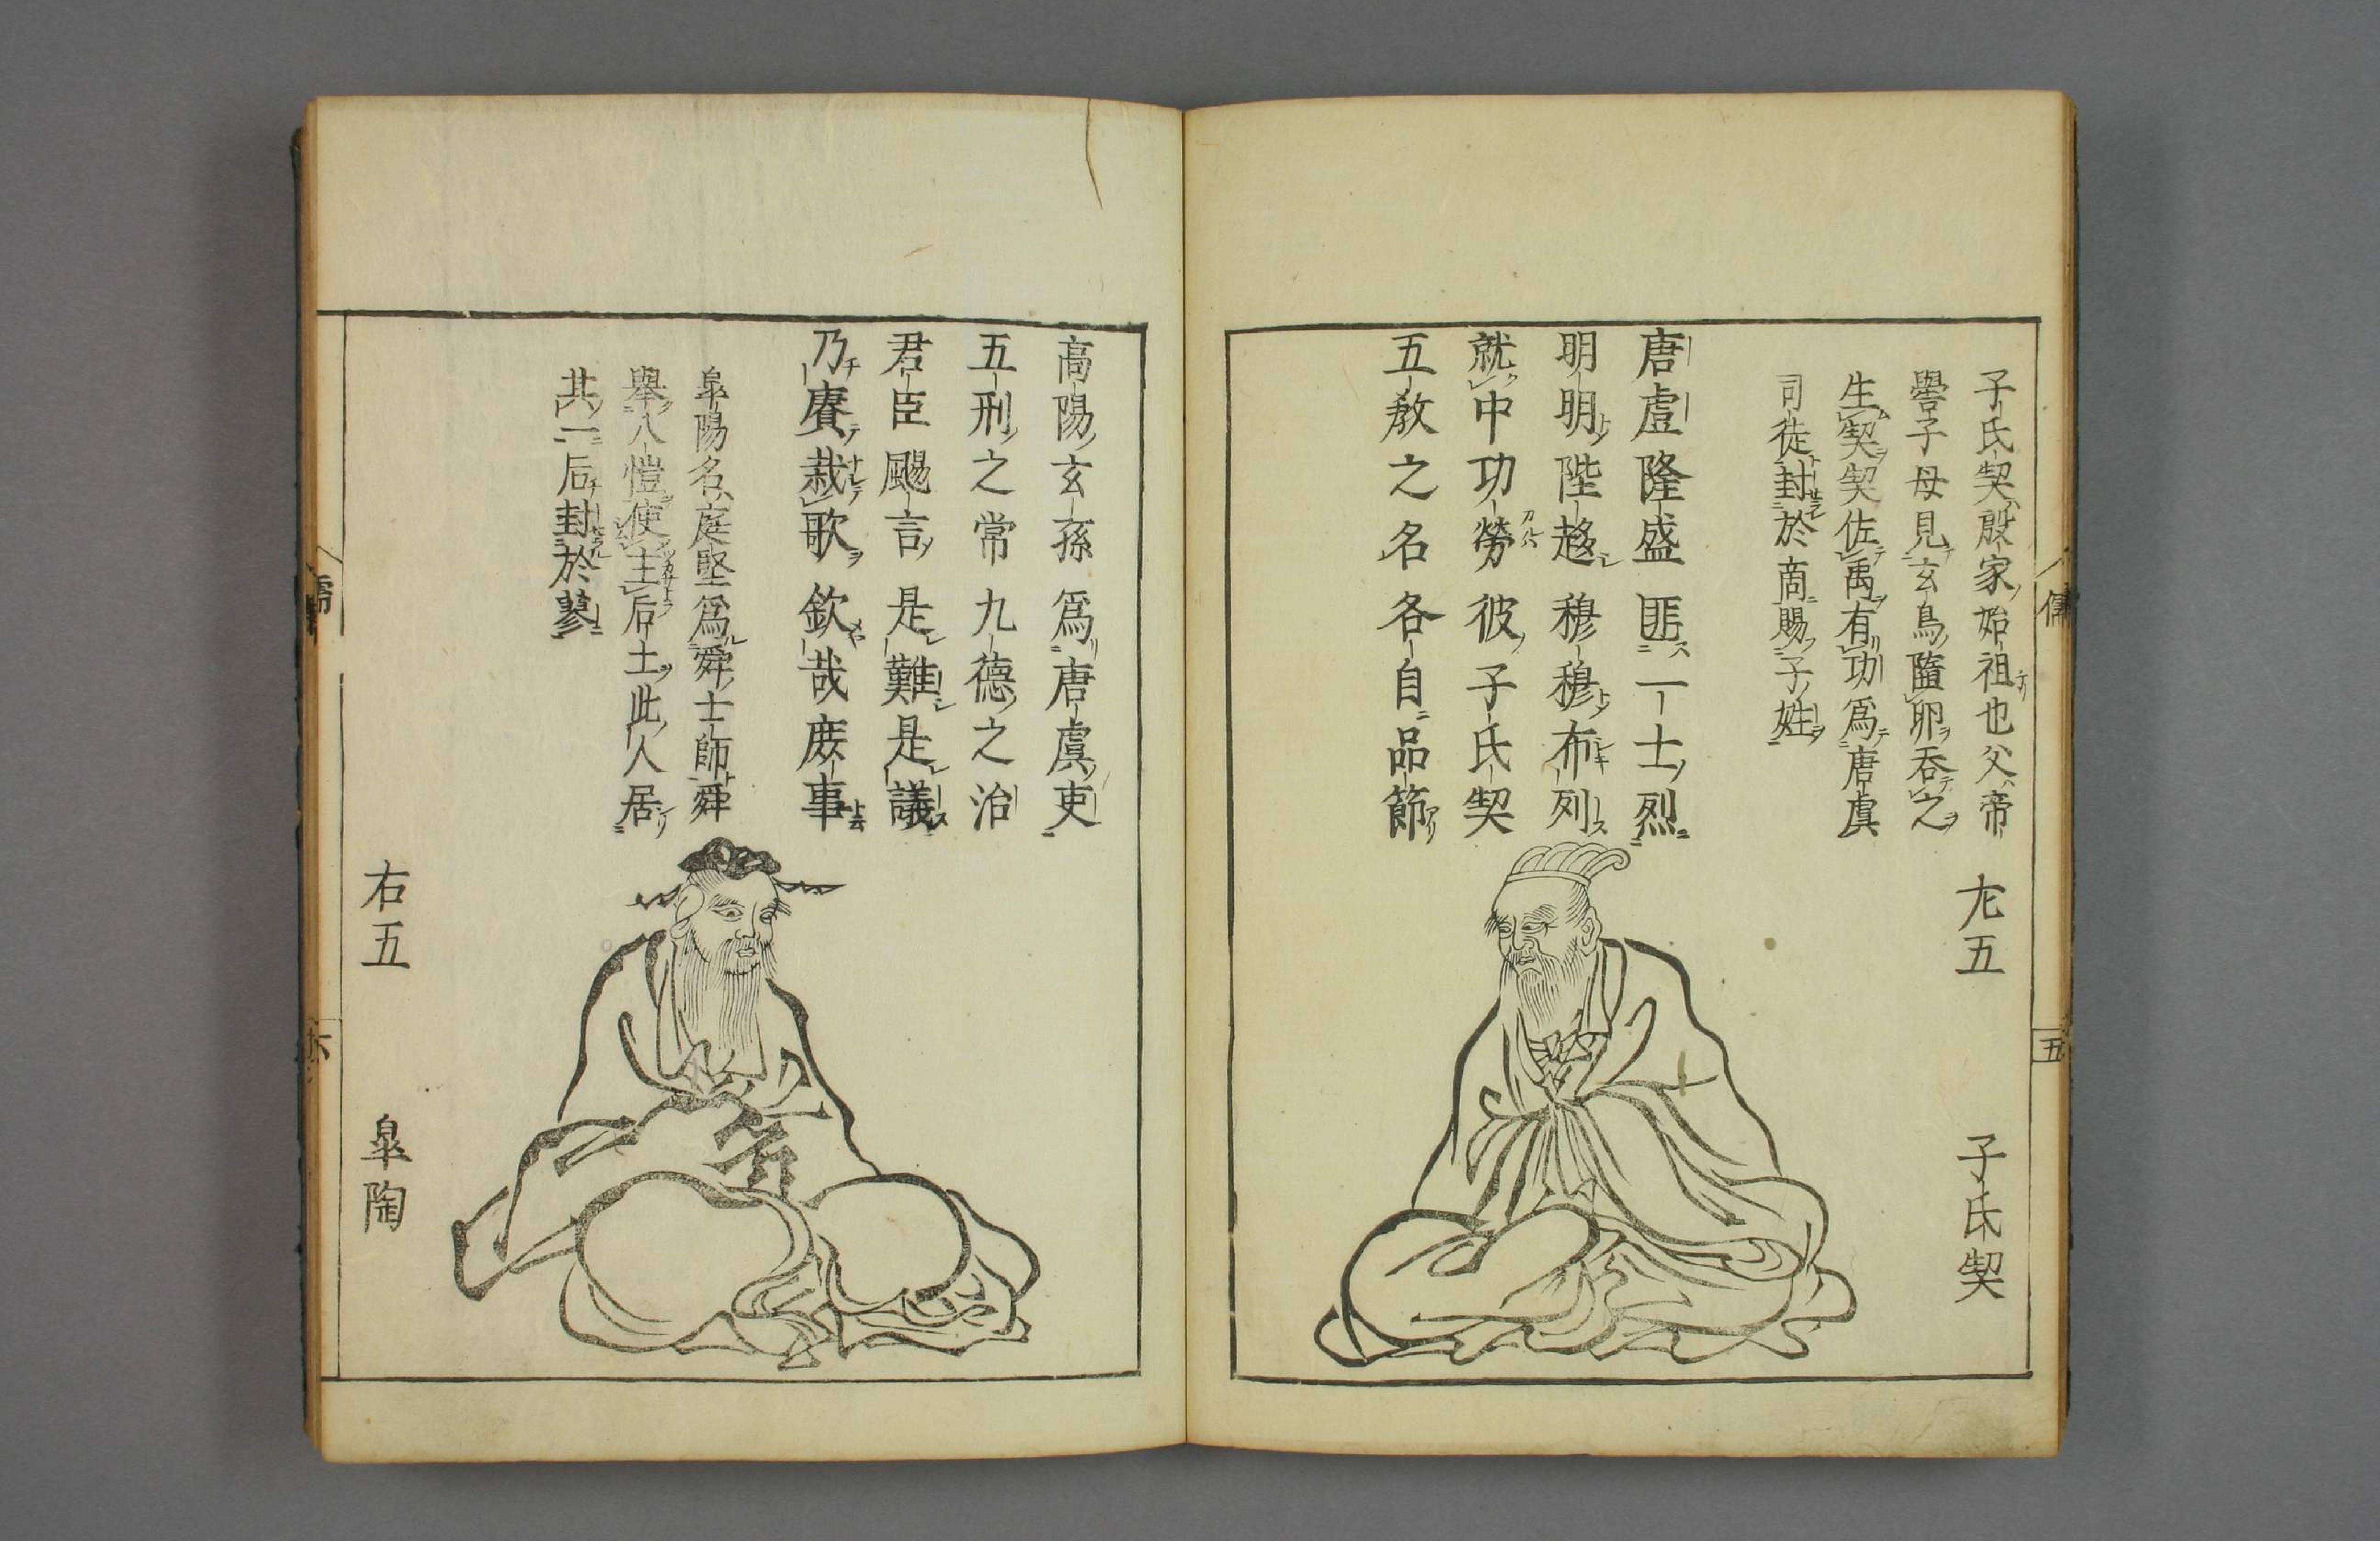 左五　子氏契
子氏契殷家始祖也父帝
嚳子母見玄鳥墮卵呑之
生契契佐禹有功爲唐虞
司徒封於商賜子姓
唐虛隆盛匪一士烈
明明陛趍穆穆布列
就中功勞彼子氏契
五教之名各自品節
五
高陽玄孫爲唐虞吏
五刑之常九德之治
君臣颺言是難是議
乃賡栽歌欽哉庶事
皐陽名庭堅爲舜士師舜
舉八愷使主后土此人居
其一后封於蓼
右五　皐陶